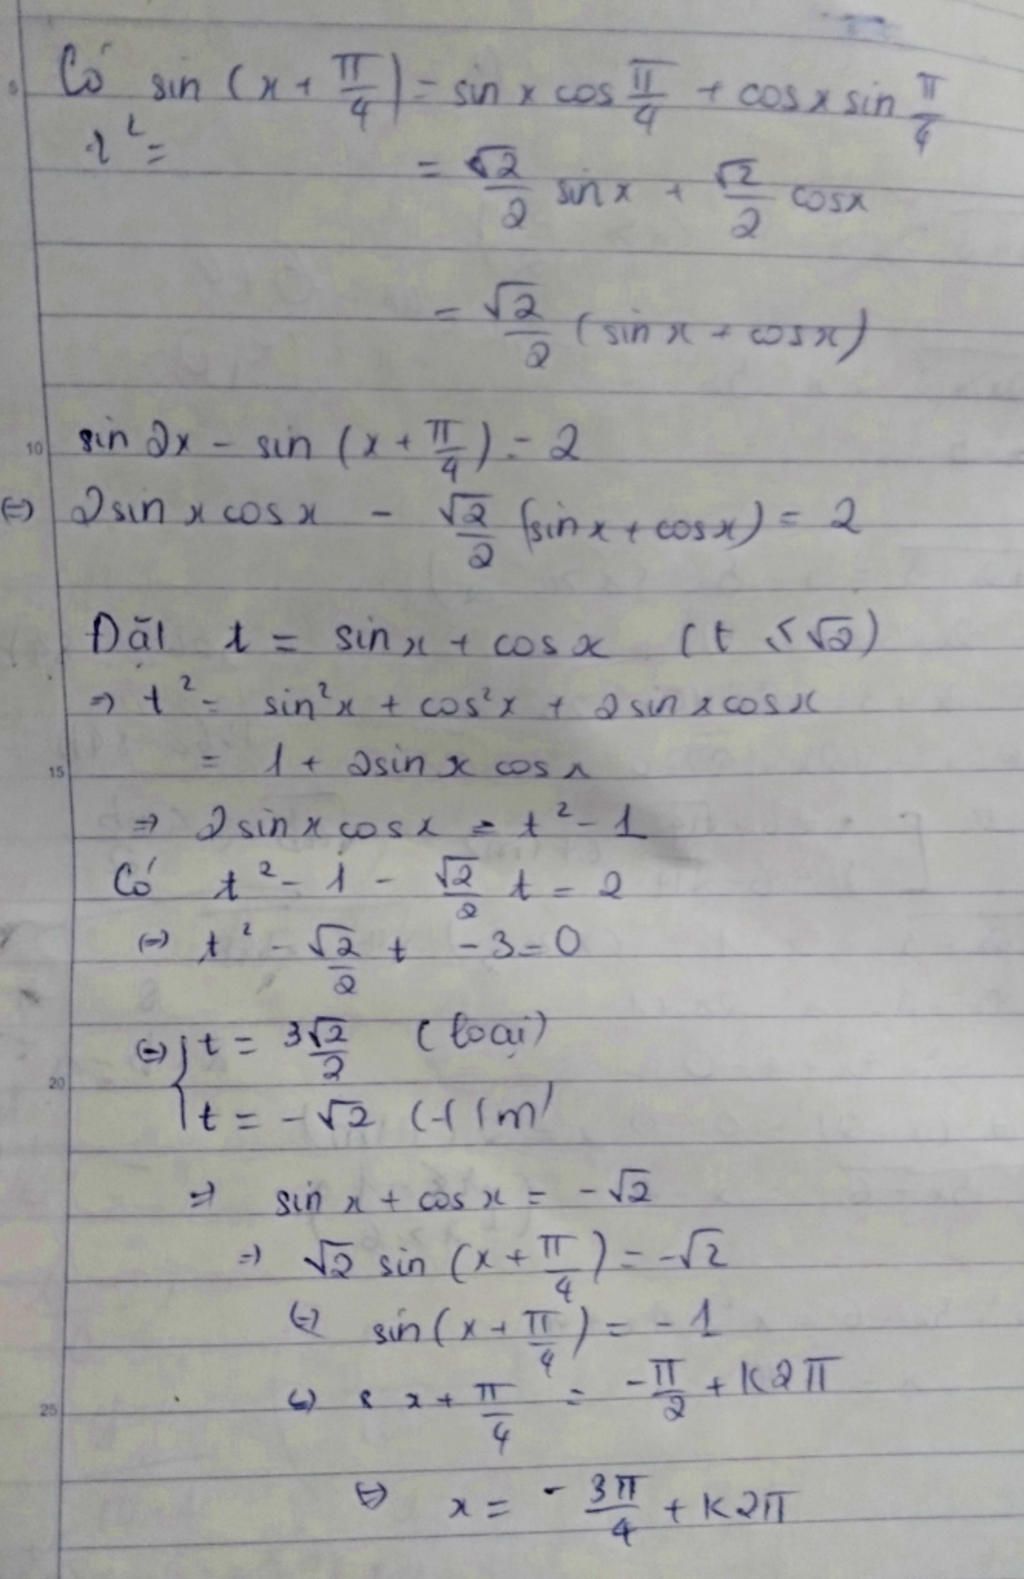 Có sin (x + π/4) = sin x cos π/4 + cos x sin π/4
= √2/2 sin x + √2/2 cos x
= √2/2 (sin x + cos x)
sin 2x - sin (x + π/4) = 2
(=) 2 sin x cos x - √2/2 (sin x + cos x) = 2
Đặt t = sin x + cos x (t ≤ √2)
=> t² = sin²x + cos²x + 2 sin x cos x
= 1 + 2 sin x cos x
=> 2 sin x cos x = t² - 1
Có t² - 1 - √2/2 t = 2
(=) t² - √2/2 t - 3 = 0
(=) { t = 3√2/2 (loại)
t = -√2
=> sin x + cos x = -√2
=> √2 sin (x + π/4) = -√2
(=) sin (x + π/4) = -1
(=) x + π/4 = -π/2 + K2π
(=) x = -3π/4 + K2π